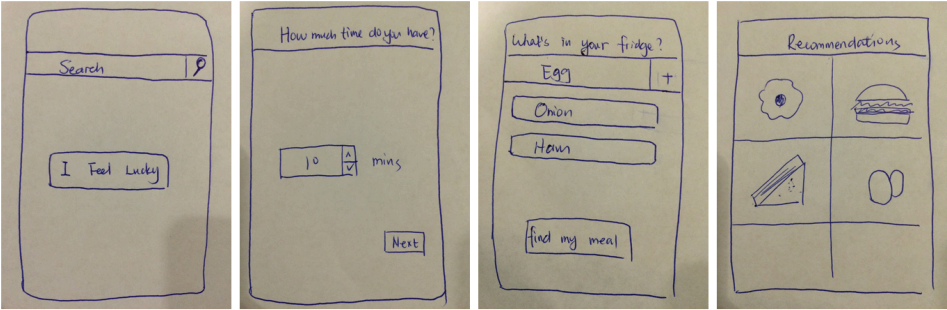 Search
I Feel Lucky
How much time do you have?
10 mins
Next
What's in your fridge?
Egg +
Onion
Ham
find my meal
Recommendations